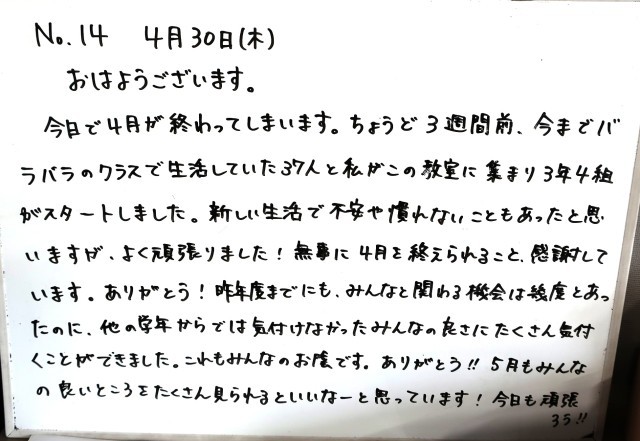 No.14 4月30日(木)
おはようございます。
今日で4月が終わってしまいます。ちょうど3週間前、今までバ
ラバラのクラスで生活していた37人と私がこの教室に集まり3年4組
がスタートしました。新しい生活で不安や慣れないこともあったと思
いますが、よく頑張りました！無事に4月を終えられること、感謝して
います。ありがとう！昨年度までにも、みんなと関わる機会は幾度とあっ
たのに、他の学年からでは気付けなかったみんなの良さにたくさん気付
くことができました。これもみんなのお陰です。ありがとう!!5月もみんな
の良いところをたくさん見られるといいなーと思っています！今日も頑張
ろう!!